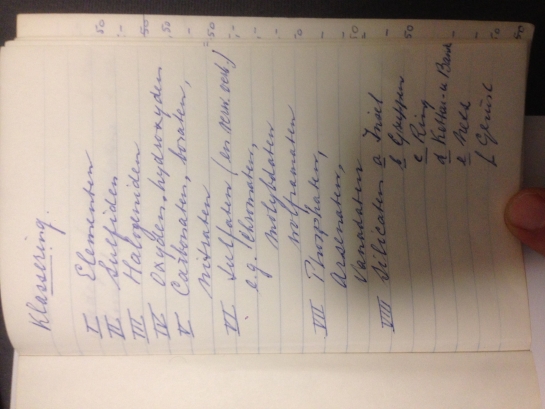 Klassering.
I Elementen
II Sulfiden
III Halogeniden
IV Oxyden, hydroxyden
V Carbonaten, boraten,
nitraten
VI Sulfaten (en
e.g. Chromaten,
molybdaten
wolframaten
VII Phosphaten,
Arsenaten,
Vanadaten
VIII Silicaten a Insel
b Gruppen
c Ring
d Ketten u Band
e Netz
f Gerüst